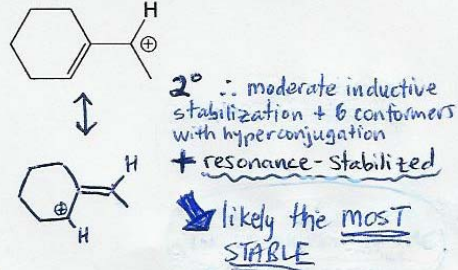 H
⊕
2° ∴ moderate inductive
stabilization + 6 conformers
with hyperconjugation
+ resonance-stabilized
H
⊕
H
likely the MOST
STABLE